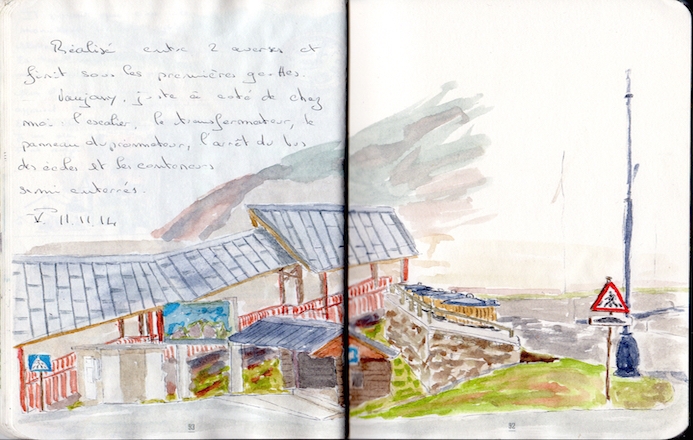 Réalisé entre 2 averses et
finit sous les premières gouttes.
Vaujany, juste à coté de chez
moi : l'escalier, le transformateur, le
panneau du promoteur, l'arrêt du bus
des écoles et les conteneurs
semi enterrés.
11.11.14